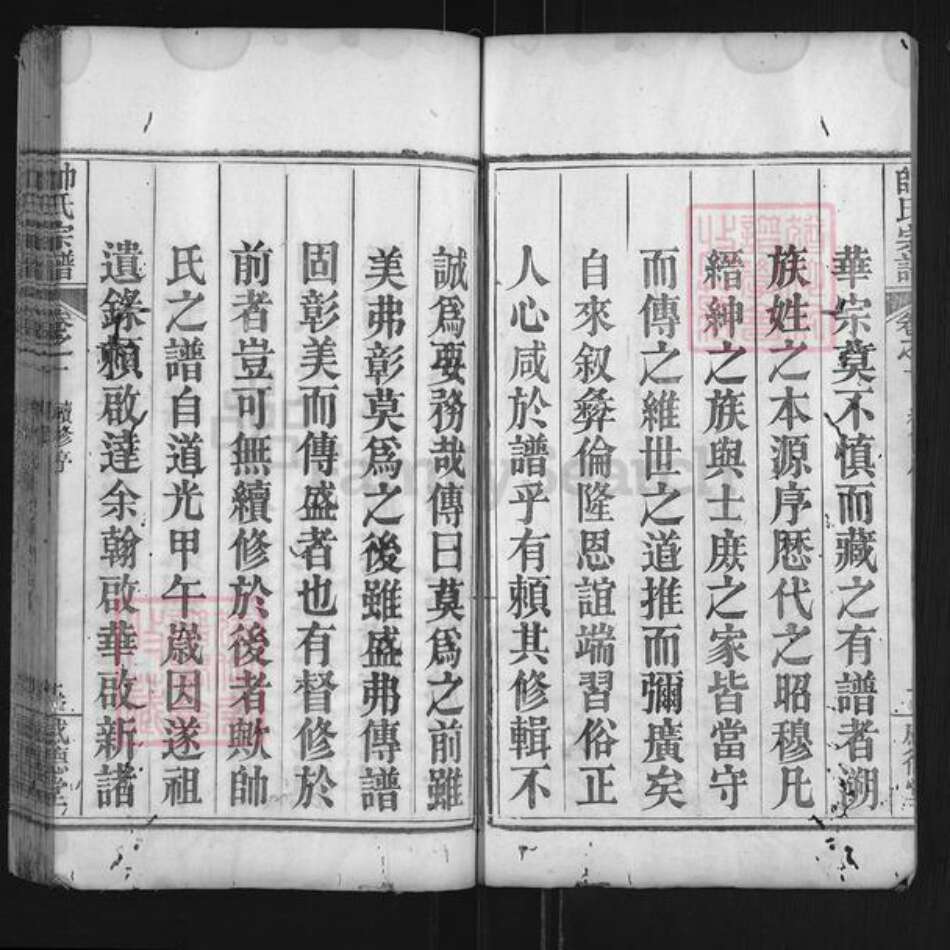 華宗莫不慎而藏之有譜者溯
族姓之本源序歷代之昭穆凡
縉紳之族與士庶之家皆當守
而傳之維世之道推而彌廣矣
自來叙彝倫隆恩誼端習俗正
人心咸於譜乎有賴其修輯不
誠為要務哉傳曰莫為之前雖
美弗彰莫為之後雖盛弗傳譜
固彰美而傳盛者也有督修於
前者豈可無續修於後者歟帥
氏之譜自道光甲午歲因遂祖
遺錄賴啟達余翰啟華啟新諸
帥氏宗譜
卷之一
續修序